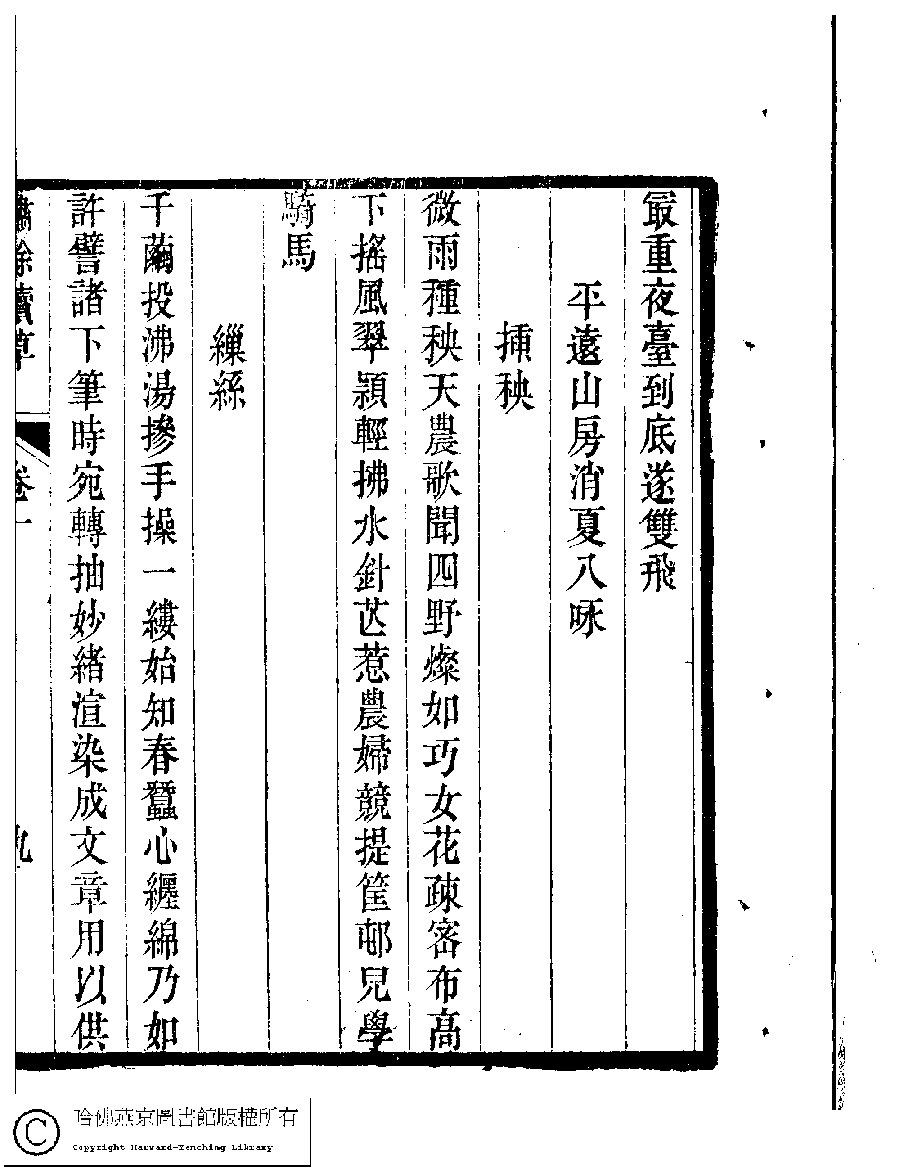 最重夜臺到底遂雙飛
平遠山房消夏八咏
插秧
微雨種秧天農歌聞四野燦如巧女花疎密布高
下搖風翠潁輕拂水針芒惹農婦競提筐邨兒學
騎馬
繅絲
千繭投沸湯摻手操一縷始知春蠶心纏綿乃如
許譬諸下筆時宛轉抽妙緒渲染成文章用以供
餘續草
卷一
九
哈佛燕京圖書館版權所有
Copyright Harvard-Yenching Library